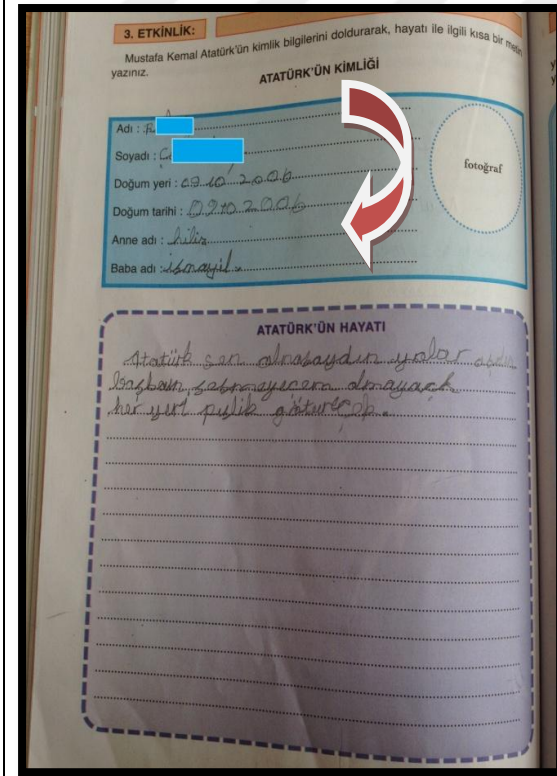 3. ETKİNLİK:
Mustafa Kemal Atatürk'ün kimlik bilgilerini doldurarak, hayatı ile ilgili kısa bir metin
yazınız.
ATATÜRK'ÜN KİMLİĞİ
Adı :
Soyadı :
Doğum yeri : 09.10.2006
Doğum tarihi : 09.10.2006
Anne adı :
Baba adı : ismayil
fotoğraf
ATATÜRK'ÜN HAYATI
Atatürk sen olmasaydın yollar
her yeri pislik götürecek.